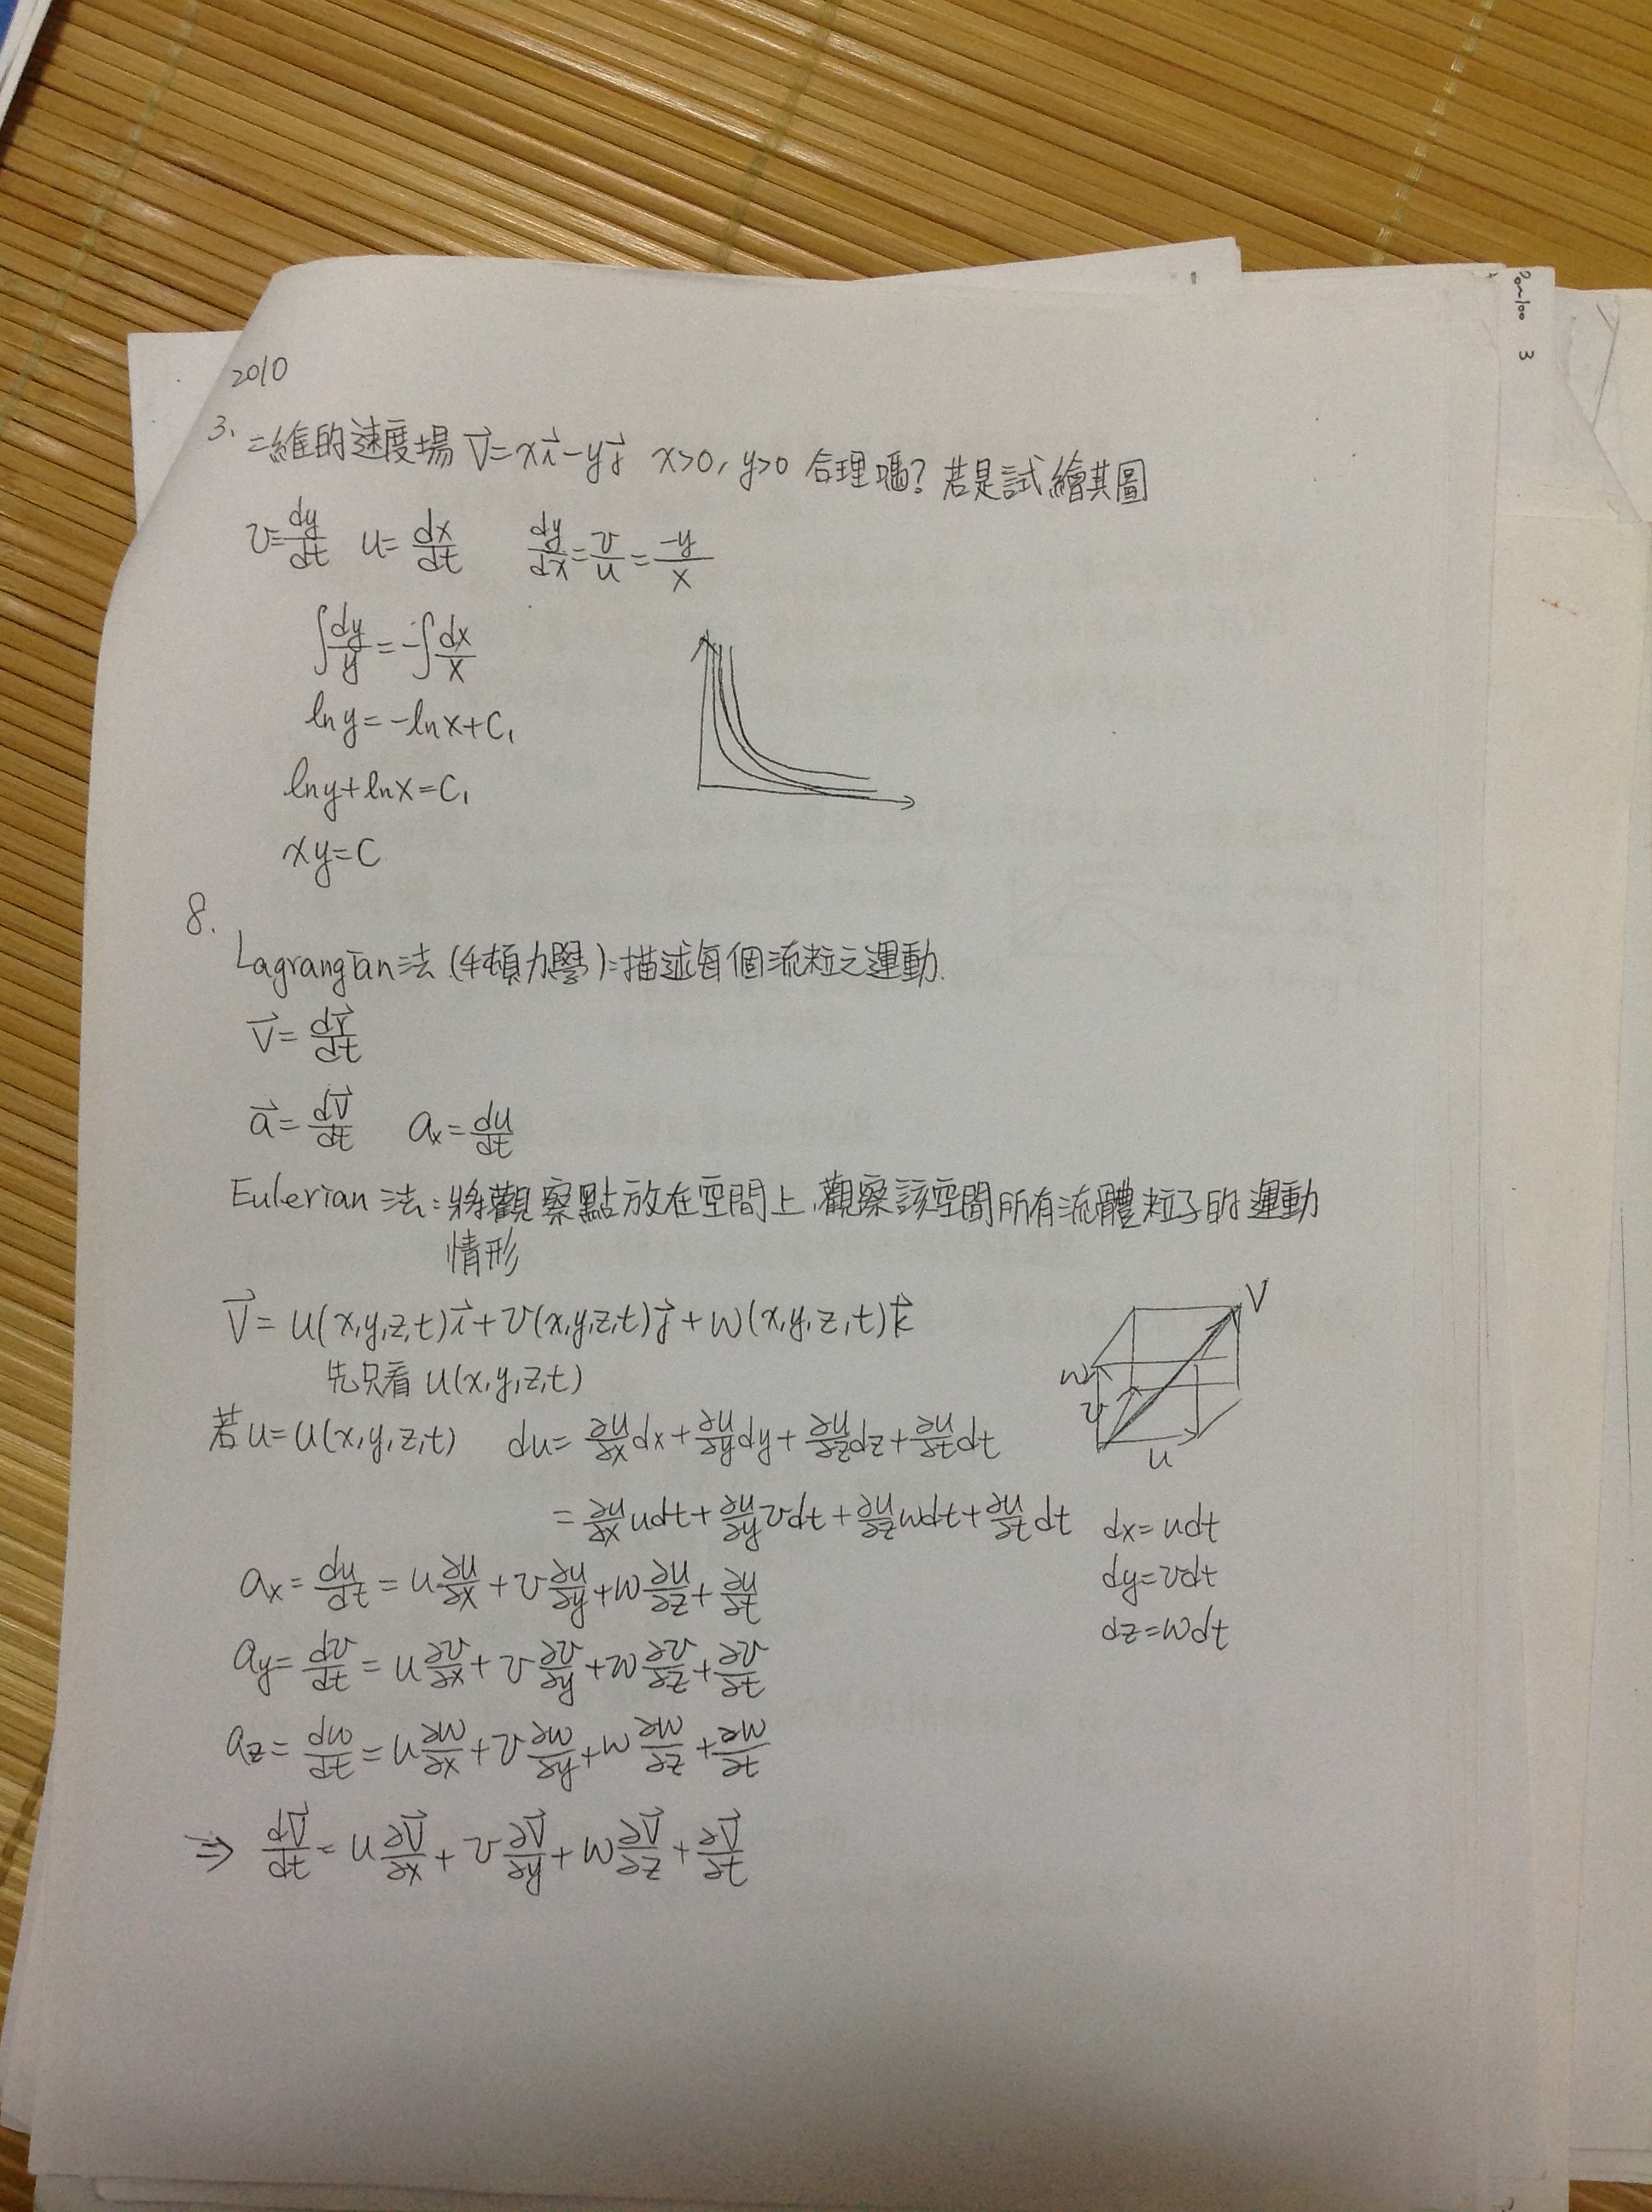 2010
3. 二維的速度場 V⃗=xi⃗-yj⃗ x>0, y>0 合理嗎? 若是試繪其圖
v=dy/dt u=dx/dt dy/dx=v/u=-y/x
∫dy/y=-∫dx/x
lny=-lnx+C₁
lny+lnx=C₁
xy=C
8.
Lagrangian法(牛頓力學):描述每個流粒之運動.
V⃗=dr⃗/dt
a⃗=dV⃗/dt aₓ=du/dt
Eulerian法:將觀察點放在空間上,觀察該空間所有流體粒子的運動
情形
V⃗=u(x,y,z,t)i⃗+v(x,y,z,t)j⃗+w(x,y,z,t)k⃗
先只看 u(x,y,z,t)
若u=u(x,y,z,t) du=∂u/∂x dx+∂u/∂y dy+∂u/∂z dz+∂u/∂t dt
=∂u/∂x udt+∂u/∂y vdt+∂u/∂z wdt+∂u/∂t dt
V
w
v
u
dx=udt
dy=vdt
dz=wdt
ax=du/dt=u∂u/∂x+v∂u/∂y+w∂u/∂z+∂u/∂t
ay=dv/dt=u∂v/∂x+v∂v/∂y+w∂v/∂z+∂v/∂t
az=dw/dt=u∂w/∂x+v∂w/∂y+w∂w/∂z+∂w/∂t
⇒ dV⃗/dt=u∂V⃗/∂x+v∂V⃗/∂y+w∂V⃗/∂z+∂V⃗/∂t